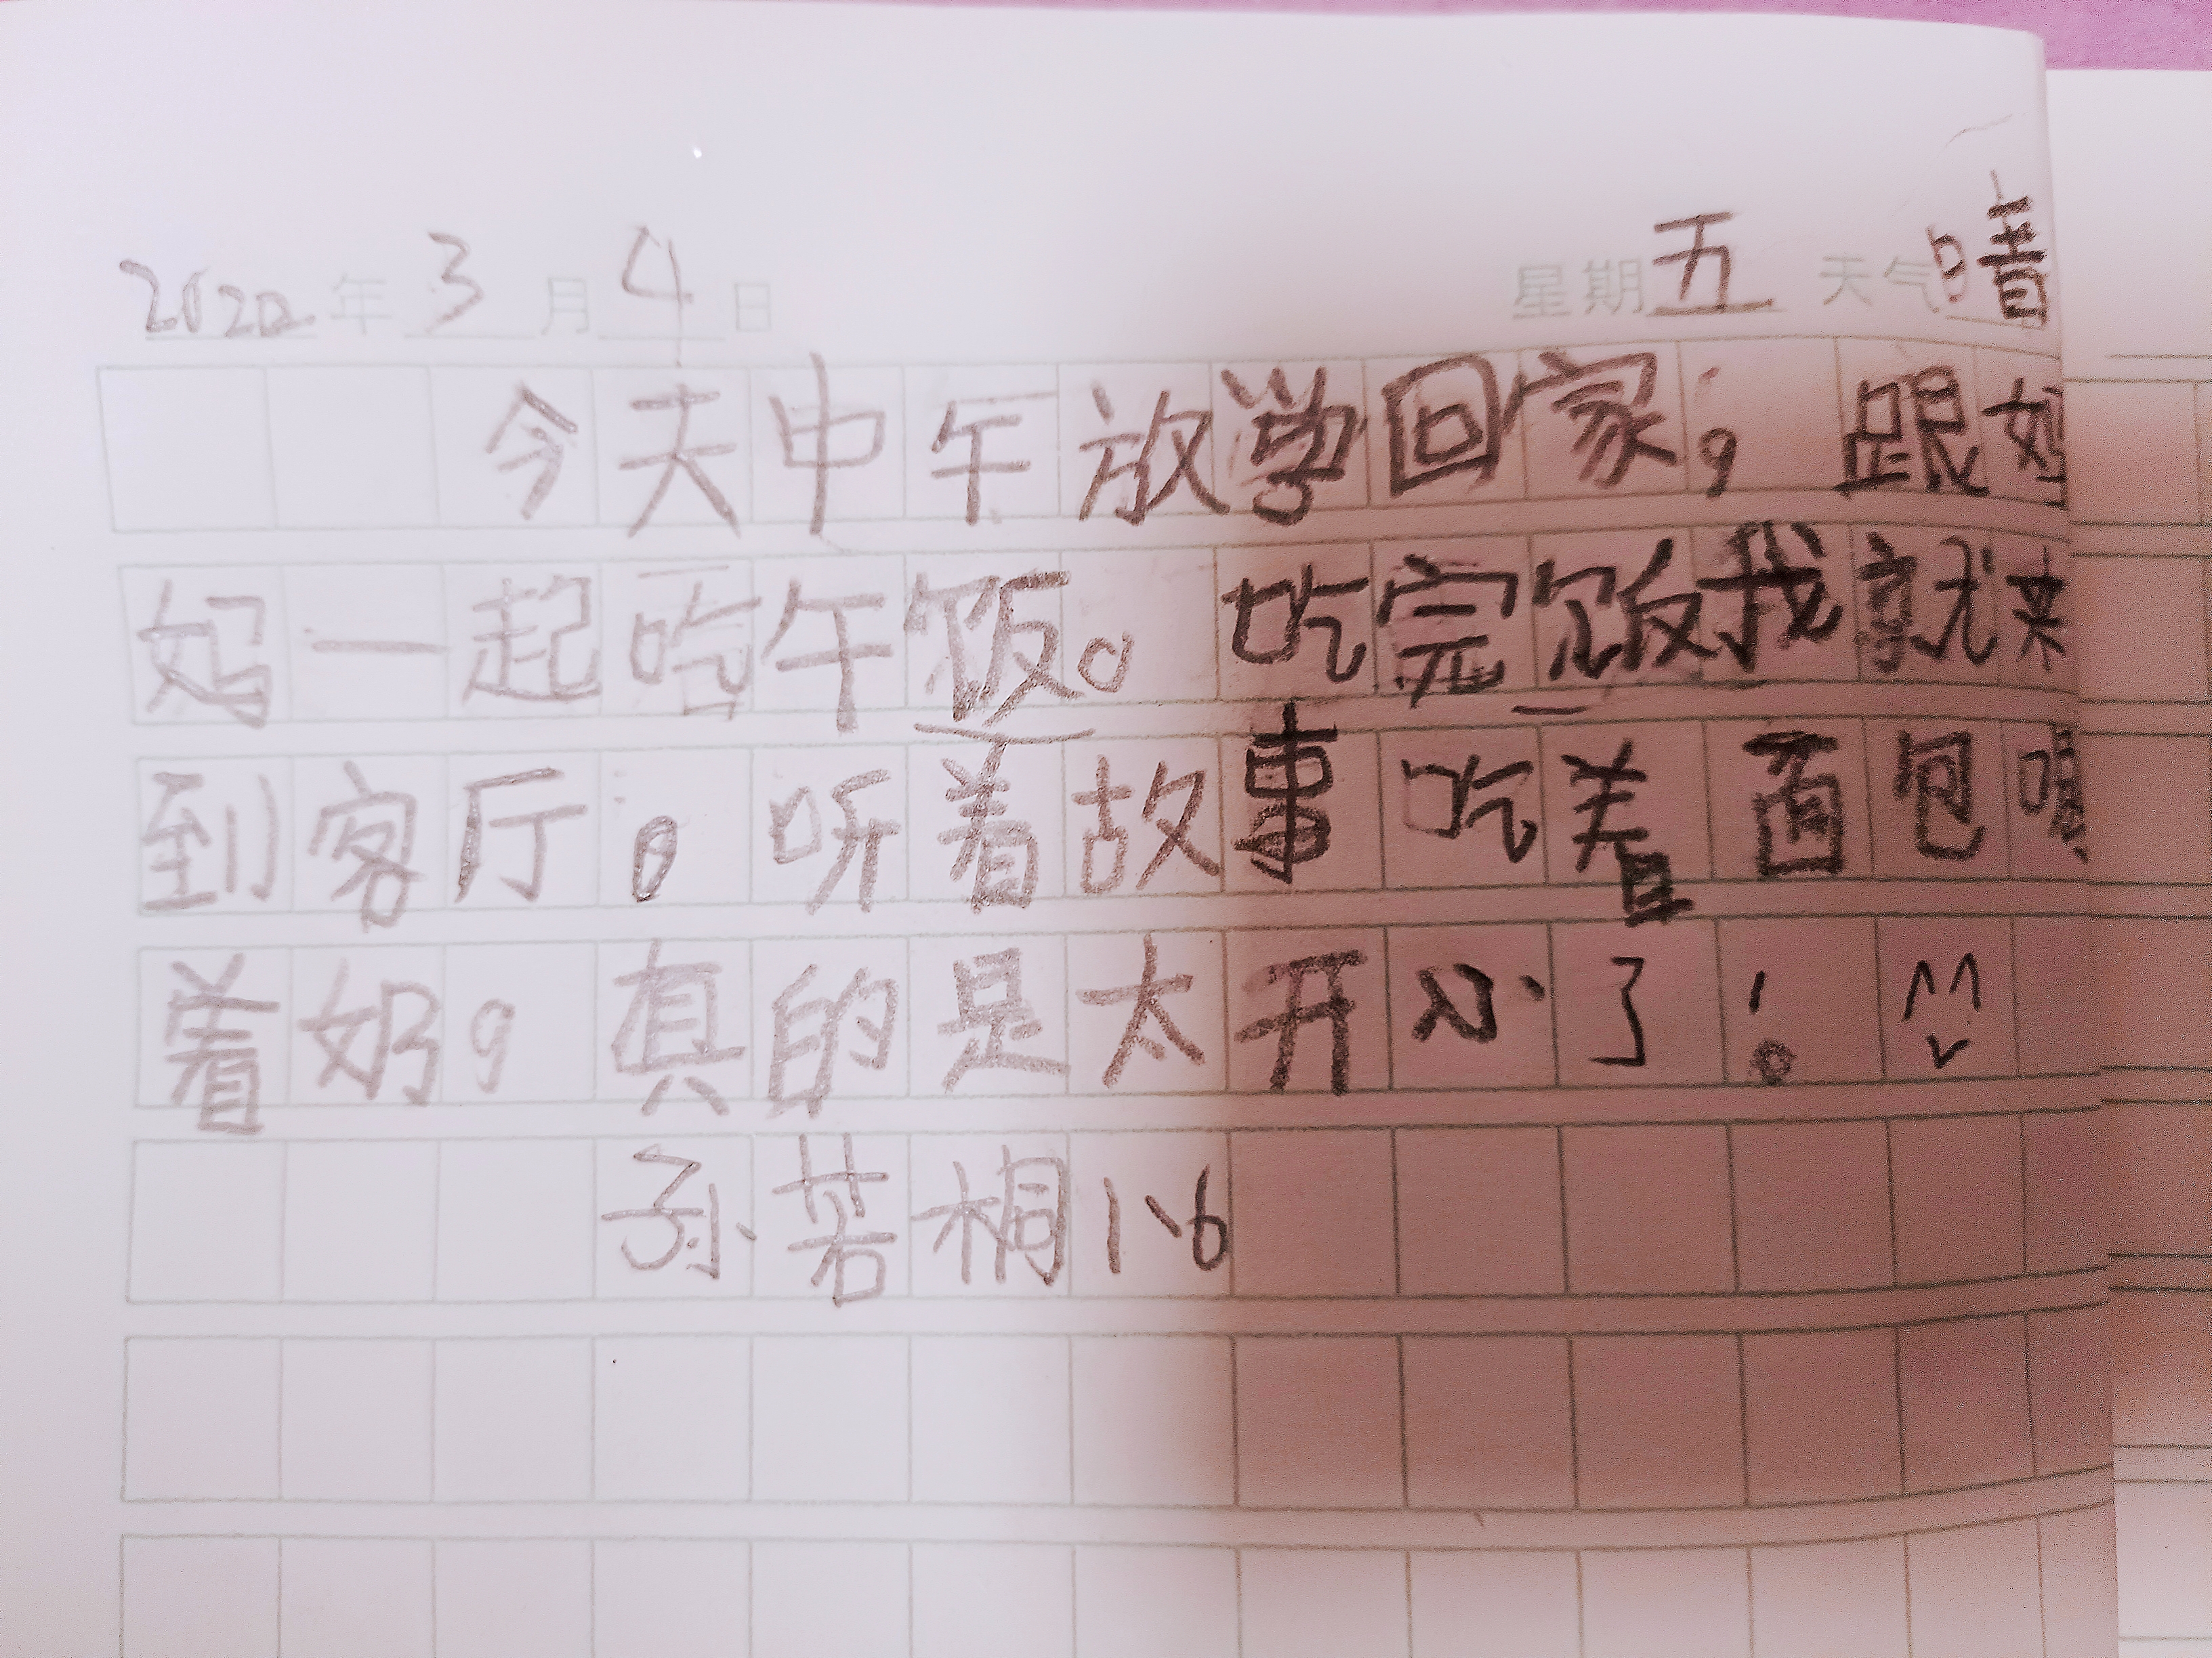 2022年3月4日 星期五 天气晴
今天中午放学回家，跟妈
妈一起吃午饭。吃完饭我就来
到客厅。听着故事吃着面包喝
着奶。真的是太开心了！
孙若桐1、6